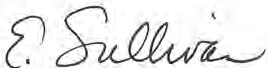 E. Sullivan